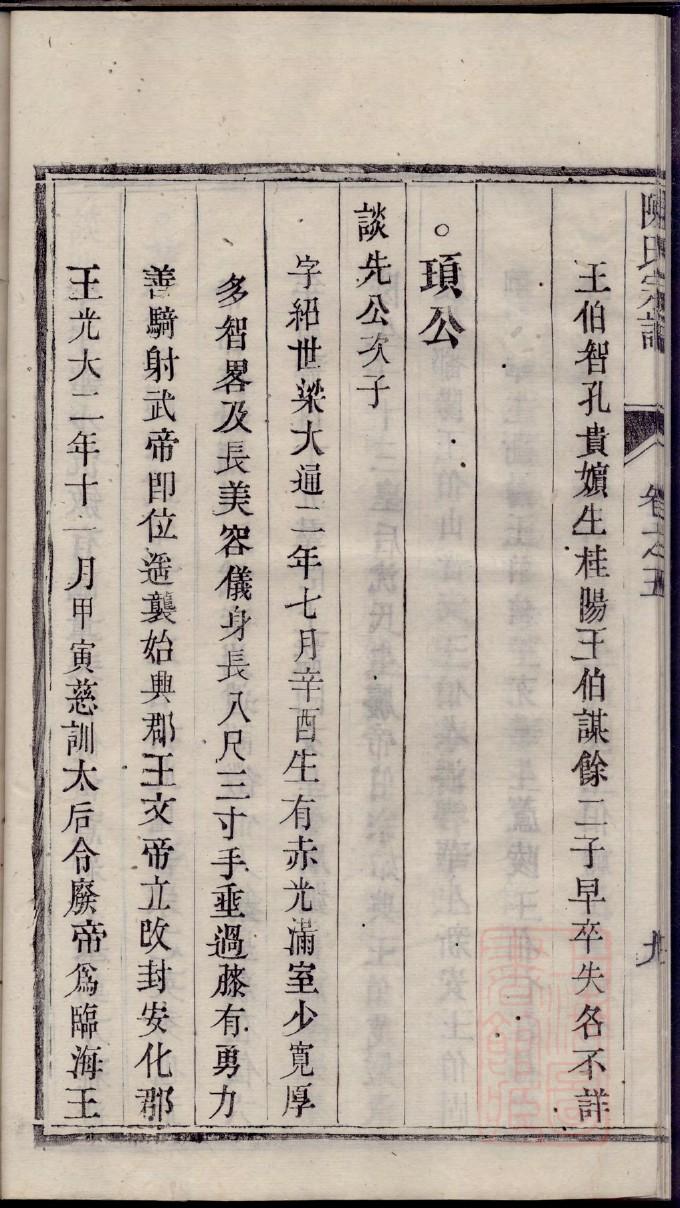 陳氏宗譜 卷之五 九
王伯智孔貴嬪生桂陽王伯謀餘二子早卒失名不詳
。頊公
談先公次子
字紹世梁大通二年七月辛酉生有赤光滿室少寬厚
多智畧及長美容儀身長八尺三寸手垂過膝有勇力
善騎射武帝即位遥襲始興郡王文帝立改封安化郡
王光大二年十一月甲寅慈訓太后令廢帝爲臨海王